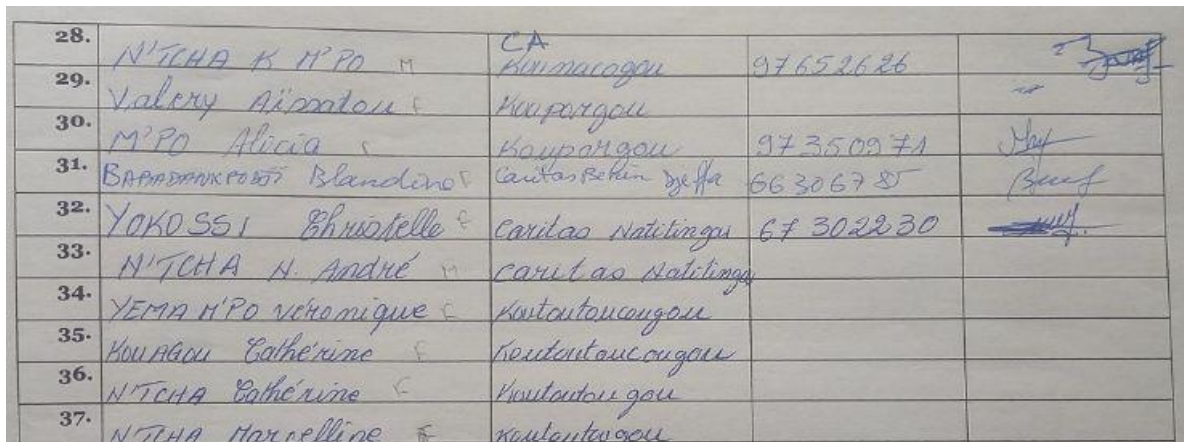 28. N'TCHA K M'PO M CA Koumacogou 97652626
29. Valery Aïssatou F Koupargou
30. M'PO Alicia F Koupargou 97350971
31. Blandine F Caritas Benin Djeffa 66306785
32. YOKOSSI Christelle F Caritas Natitingou 67302230
33. N'TCHA N. André M Caritas Natitingou
34. YEMA M'PO Véronique F Koutoutoucougou
35. KOUAGOU Cathérine F Koutoutoucougou
36. N'TCHA Cathérine F Koutoutougou
37. N'TCHA Marcelline F Koutoutougou